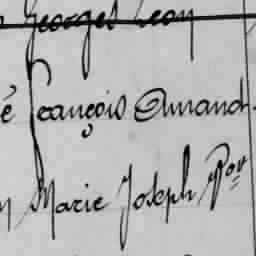 Georges Léon
é François Amand
Marie Joseph Por